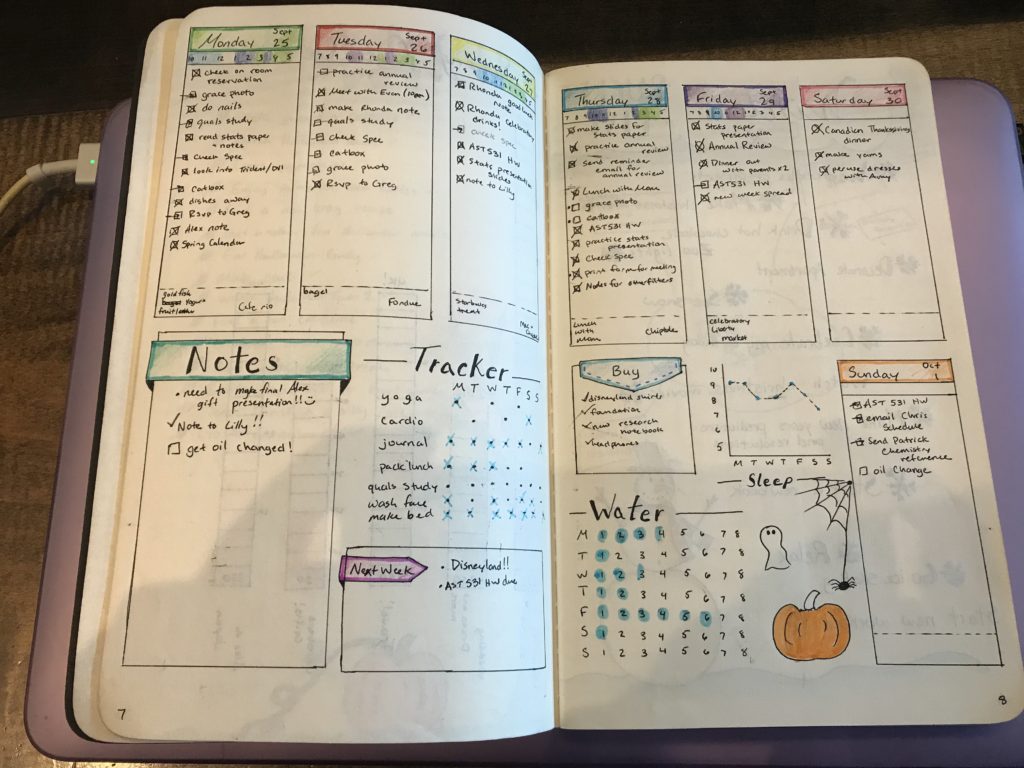 Monday
Sept
25
10 11 12 1 2 3 4 5
check on room
reservation
grace photo
do nails
quals study
read stats paper
+ notes
Check Spec
look into Trident/DVI
Catbox
dishes away
Rsvp to Greg
Alex note
Spring Calendar
goldfish
yogurt
Cafe rio
Tuesday
Sept
26
7 8 9 10 11 12 1 2 3 4 5
practice annual
review
Meet with Evan
make Rhonda note
quals study
Check Spec
catbox
grace photo
Rsvp to Greg
bagel
Fondue
Wednesday
Sept
Rhonda good luck
note
Rhonda Celebratory
drinks!
check spec
AST531 HW
Stats presentation
slides
note to Lilly
Starbucks
treat
Mac +
Thursday
Sept
28
7 8 9 10 11 12 1 2 3 4 5
make slides for
Stats paper
practice annual
review
Send reminder
email for
annual review
Lunch with Mom
grace photo
catbox
AST531 HW
practice stats
presentation
Check Spec
print form for meeting
Notes for other filters
Lunch
with
Mom
Chipotle
Friday
Sept
29
7 8 9 10 11 12 1 2 3 4 5
Stats paper
presentation
Annual Review
Dinner out
with parents x2
AST531 HW
new week spread
celebratory
liberty
market
Saturday
Sept
30
Canadien Thanksgiving
dinner
make yams
peruse dresses
with Amy
Notes
• need to make final Alex
gift presentation!!
Note to Lilly!!
get oil changed!
Tracker
M T W T F S S
yoga
Cardio
journal
pack lunch
quals study
wash face
make bed
Next Week
• Disneyland!!
• AST 531 HW due
7
Buy
disneyland shirts
foundation
new research
notebook
headphones
10
9
8
7
6
5
M T W T F S S
Sleep
Water
M 1 2 3 4 5 6 7 8
T 1 2 3 4 5 6 7 8
W 1 2 3 4 5 6 7 8
T 1 2 3 4 5 6 7 8
F 1 2 3 4 5 6 7 8
S 1 2 3 4 5 6 7 8
S 1 2 3 4 5 6 7 8
Sunday
Oct
1
AST 531 HW
email Chris
Schedule
Send Patrick
Chemistry
reference
oil Change
8